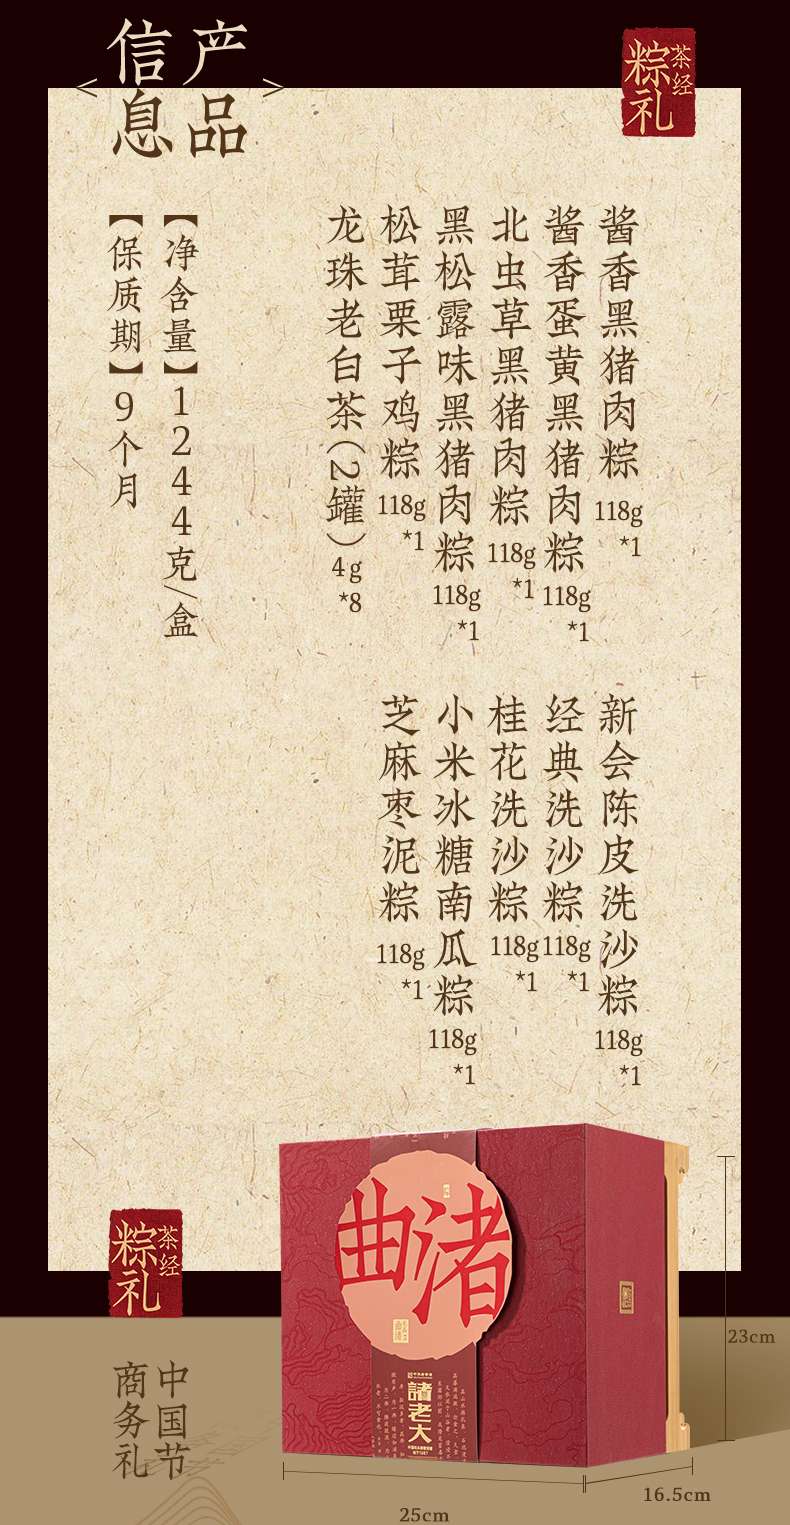 产品
信息
茶经
粽礼
酱香黑猪肉粽 118g*1
酱香蛋黄黑猪肉粽 118g*1
北虫草黑猪肉粽 118g*1
黑松露味黑猪肉粽 118g*1
松茸栗子鸡粽 118g*1
龙珠老白茶（2罐）4g*8
【净含量】1244克/盒
【保质期】9个月
新会陈皮洗沙粽 118g*1
经典洗沙粽 118g*1
桂花洗沙粽 118g*1
小米冰糖南瓜粽 118g*1
芝麻枣泥粽 118g*1
茶经
粽礼
中国节
商务礼
渚
曲
諸老大
23cm
16.5cm
25cm